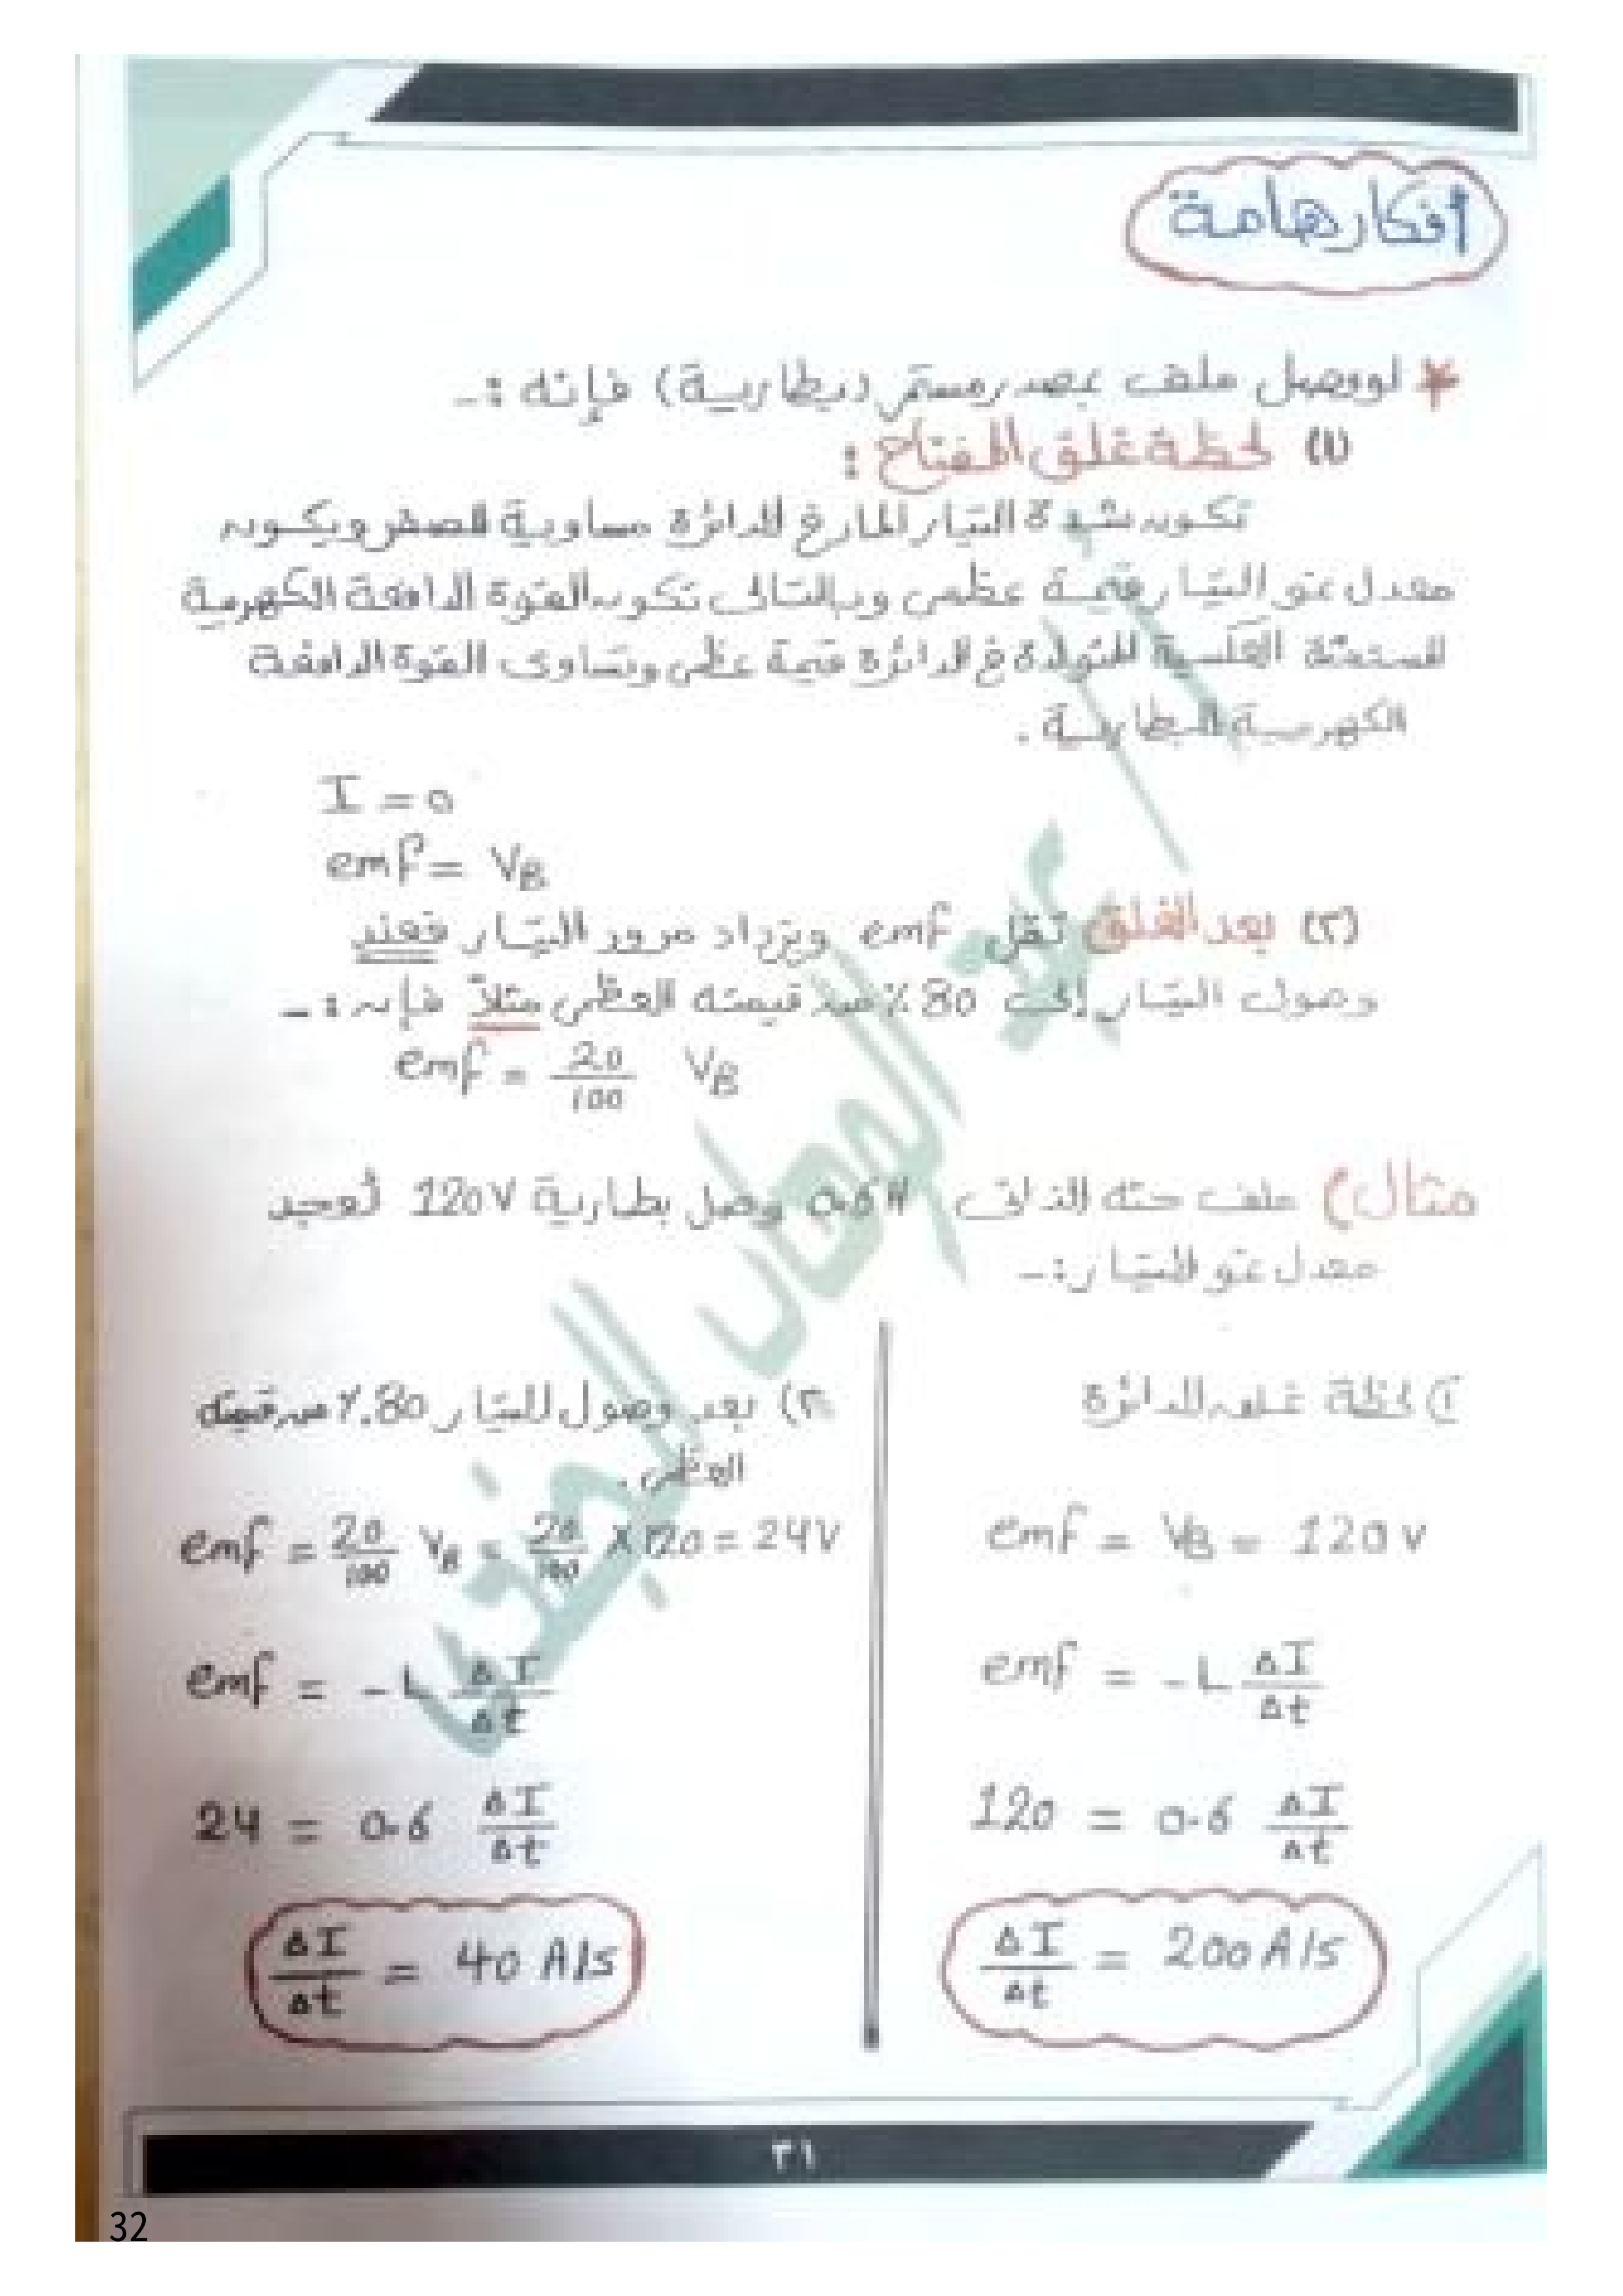 أفكار هامة
* لو وصل ملف بمصدر مستمر (بطارية) فإنه :-
(١) لحظة غلق المفتاح :
تكون شدة التيار المار في الدائرة مساوية للصفر ويكون
معدل نمو التيار قيمة عظمى وبالتالى تكون القوة الدافعة الكهربية
المستحثة العكسية المتولدة فى الدائرة قيمة عظمى وتساوى القوة الدافعة
الكهربية للبطارية .
I = 0
emf = VB
(٢) بعد الغلق تقل emf ويزداد مرور التيار فعند
وصول التيار إلى 80 ٪ من قيمته العظمى مثلاً فإن :-
emf = 20/100 VB
مثال) ملف حثه الذاتى 0.6 H وصل بطارية 120V أوجد
معدل نمو التيار :-
١) لحظة غلق الدائرة
emf = VB = 120 V
emf = -L ΔI/Δt
120 = 0.6 ΔI/Δt
ΔI/Δt = 200 A/s
٢) بعد وصول التيار 80٪ من قيمته
العظمى .
emf = 20/100 VB = 20/100 X 120 = 24V
emf = -L ΔI/Δt
24 = 0.6 ΔI/Δt
ΔI/Δt = 40 A/s
٣١
32